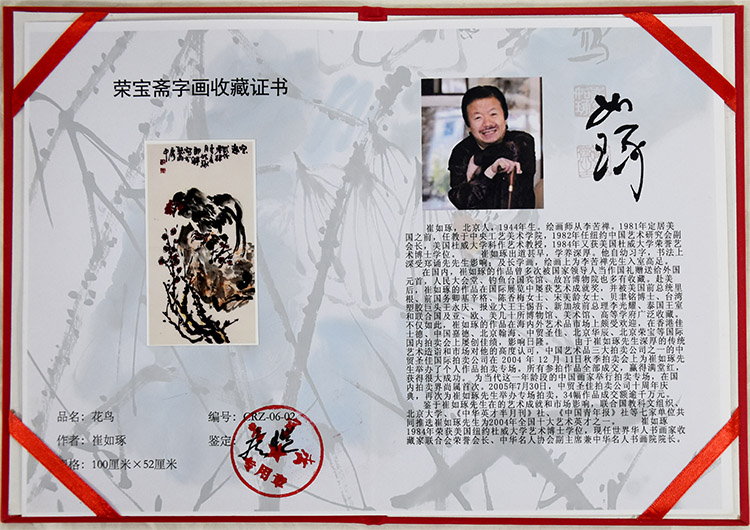 荣宝斋字画收藏证书
品名：花鸟
编号：CRZ-06-02
作者：崔如琢
鉴定：
规格：100厘米×52厘米
专用章
如琢
崔如琢，北京人，1944年生。绘画师从李苦禅，1981年定居美
国之前，任教于中央工艺美术学院，1982年任纽约中国艺术研究会副
会长，美国杜威大学科作艺术教授，1984年又获美国杜威大学荣誉艺
术博士学位。 崔如琢出道甚早，学养深厚。他自幼习字，书法上
深受郑诵先先生影响；及长学画，绘画上为李苦禅先生入室高足。
在国内，崔如琢的作品曾多次被国家领导人当作国礼赠送给外国
元首，人民大会堂、钓鱼台国宾馆、故宫博物院等也多有收藏。赴美
后，崔如琢的作品在国际展览中屡获艺术成就奖，并被美国前总统里
根、前国务卿基辛格、陈香梅女士、宋美龄女士、贝聿铭博士、台湾
塑胶巨头王永庆、报业大王王惕吾、新加坡前总理李光耀、泰国王室
和联合国及亚、欧、美几十所博物馆、美术馆、高等学府广泛收藏。
不仅如此，崔如琢的作品在海内外艺术品市场上颇受欢迎，在香港佳
士德、中国嘉德、北京翰海、中贸圣佳、北京华辰、北京荣宝等国际
国内拍卖会上屡创佳绩，影响日隆。 由于崔如琢先生深厚的传统
艺术造诣和市场对他的高度认可，中国艺术品三大拍卖公司之一的中
贸圣佳国际拍卖公司在 2004 年 12 月 11日秋季拍卖会上为崔如琢先
生举办了个人作品拍卖专场。所有参拍作品全部成交，赢得满堂红，
获得很大成功。 为当代这一年龄段的中国画家举行拍卖专场，在国
内拍卖界尚属首次。2005年7月30日，中贸圣佳拍卖公司十周年庆
典，再次为崔如琢先生举办专场拍卖，34幅作品成交额逾千万元。
鉴于崔如琢先生在的艺术成就和市场影响，联合国教科文组织、
北京大学、《中华英才半月刊》社、《中国青年报》社等七家单位共
同推选崔如琢先生为2004年全国十大艺术英才之一。 崔如琢
1984年荣获美国纽约杜威大学艺术博士学位，现任世界华人书画家收
藏家联合会荣誉会长、中华名人协会副主席兼中华名人书画院院长。